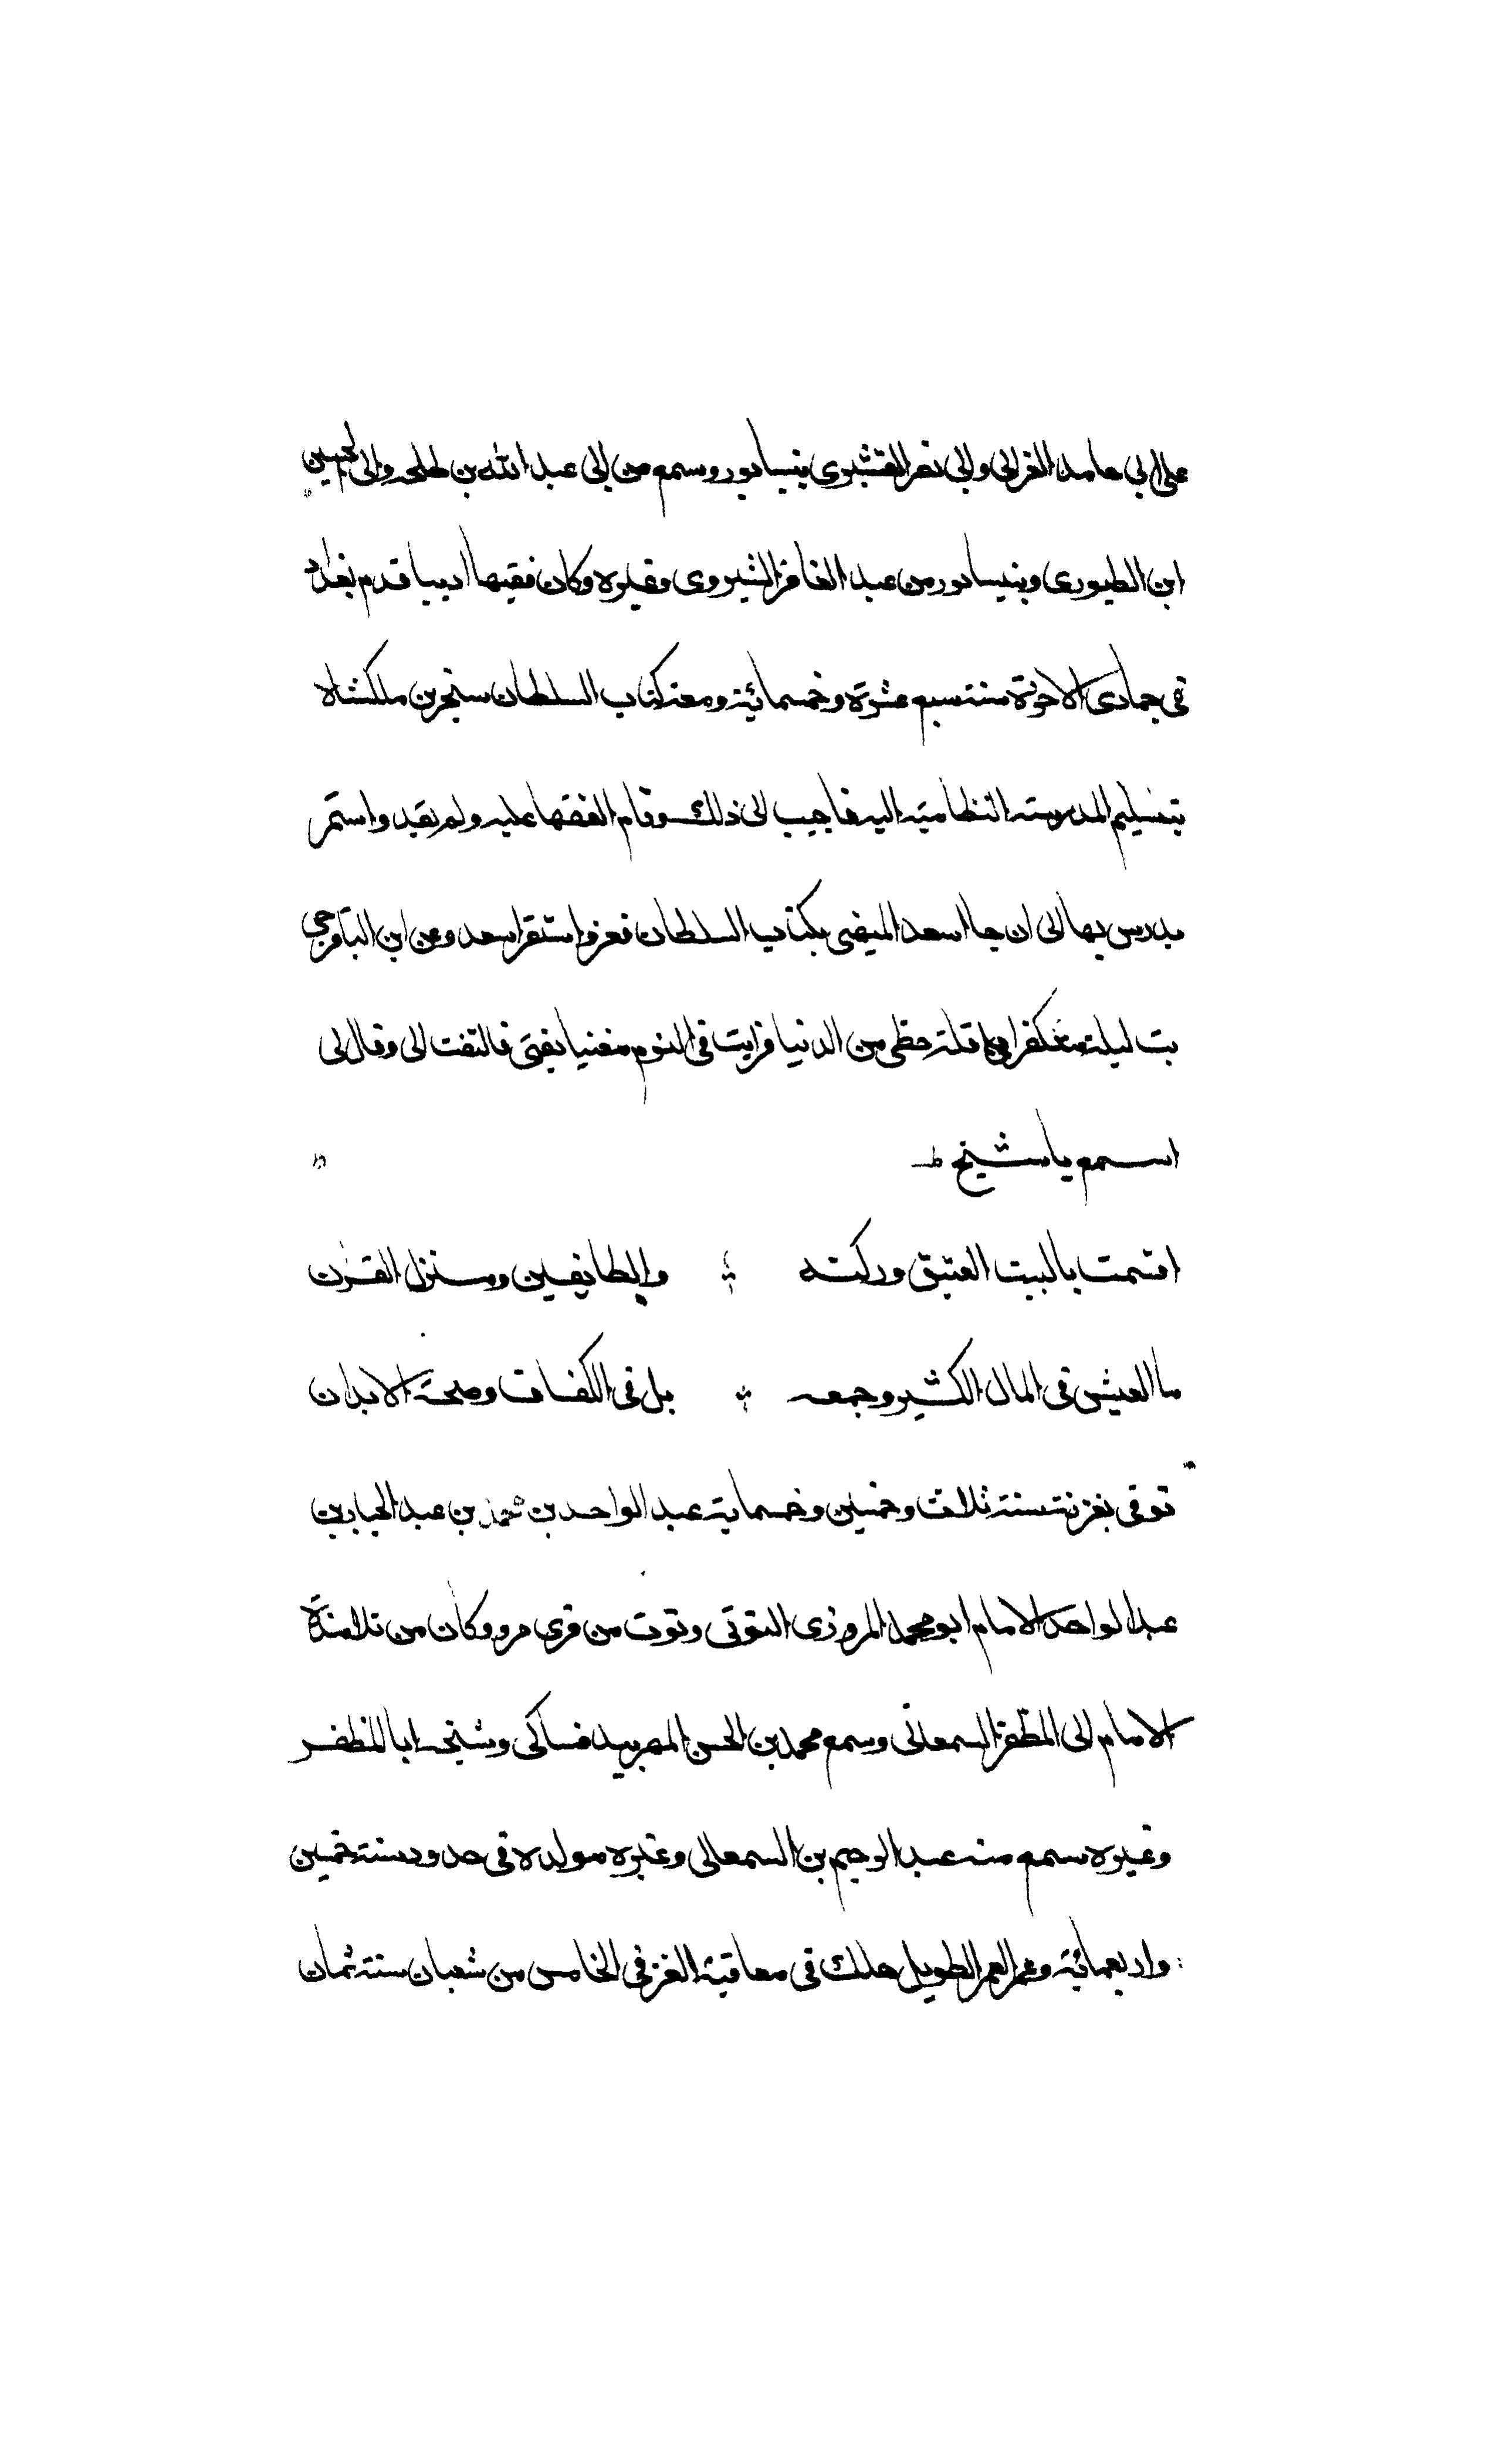 على ابي حامد الغزالي وابي نصر القشيري بنيسابور وسمع من ابي عبد الله بن طلحه وابي الحسين
ابن الطيوري وبنيسابور من عبد الغافر الشيروي وغيره وكان فقيها اديبا قدم بغداد
في جمادى الاخرة سنة سبع عشرة وخمسمائة ومعه كتاب السلطان سنجر بن ملكشاه
بتسليم المدرسة النظامية اليه فاجيب الى ذلك وقام الفقها عليه ولم يفد واستمر
يدرس بها الى ان جا اسعد الميهني بكتاب السلطان فعزل واستقر اسعد وعن ابن الباقرحي
بت ليلة متفكرا في قلة حظي من الدنيا فرايت في النوم مغنيا يغني فالتفت الي وقال لي
اسمع يا شيخ
اقسمت بالبيت العتيق وركنه والطايفين ومنزل القرن
ما العيش في المال الكثير وجمعه بل في الكفاف وصحة الابدان
توفي بغزنة سنة ثلاث وخمسين وخسماية عبد الواحد بن محمد بن عبد الجبار بن
عبد الواحد الامام ابو محمد المروزي التوتي وتوت من قرى مرو وكان من تلامذة
الامام ابي المظفر السمعاني وسمع محمد بن الحسن المهربندقساكي وشيخه ابا المظفر
وغيره سمع منه عبد الرحيم بن السمعاني وغيره مولده في حدود سنة خمسين
واربعمائة وعمر العمر الطويل هلك في معاقبة الغز في الخامس من شعبان سنة ثمان